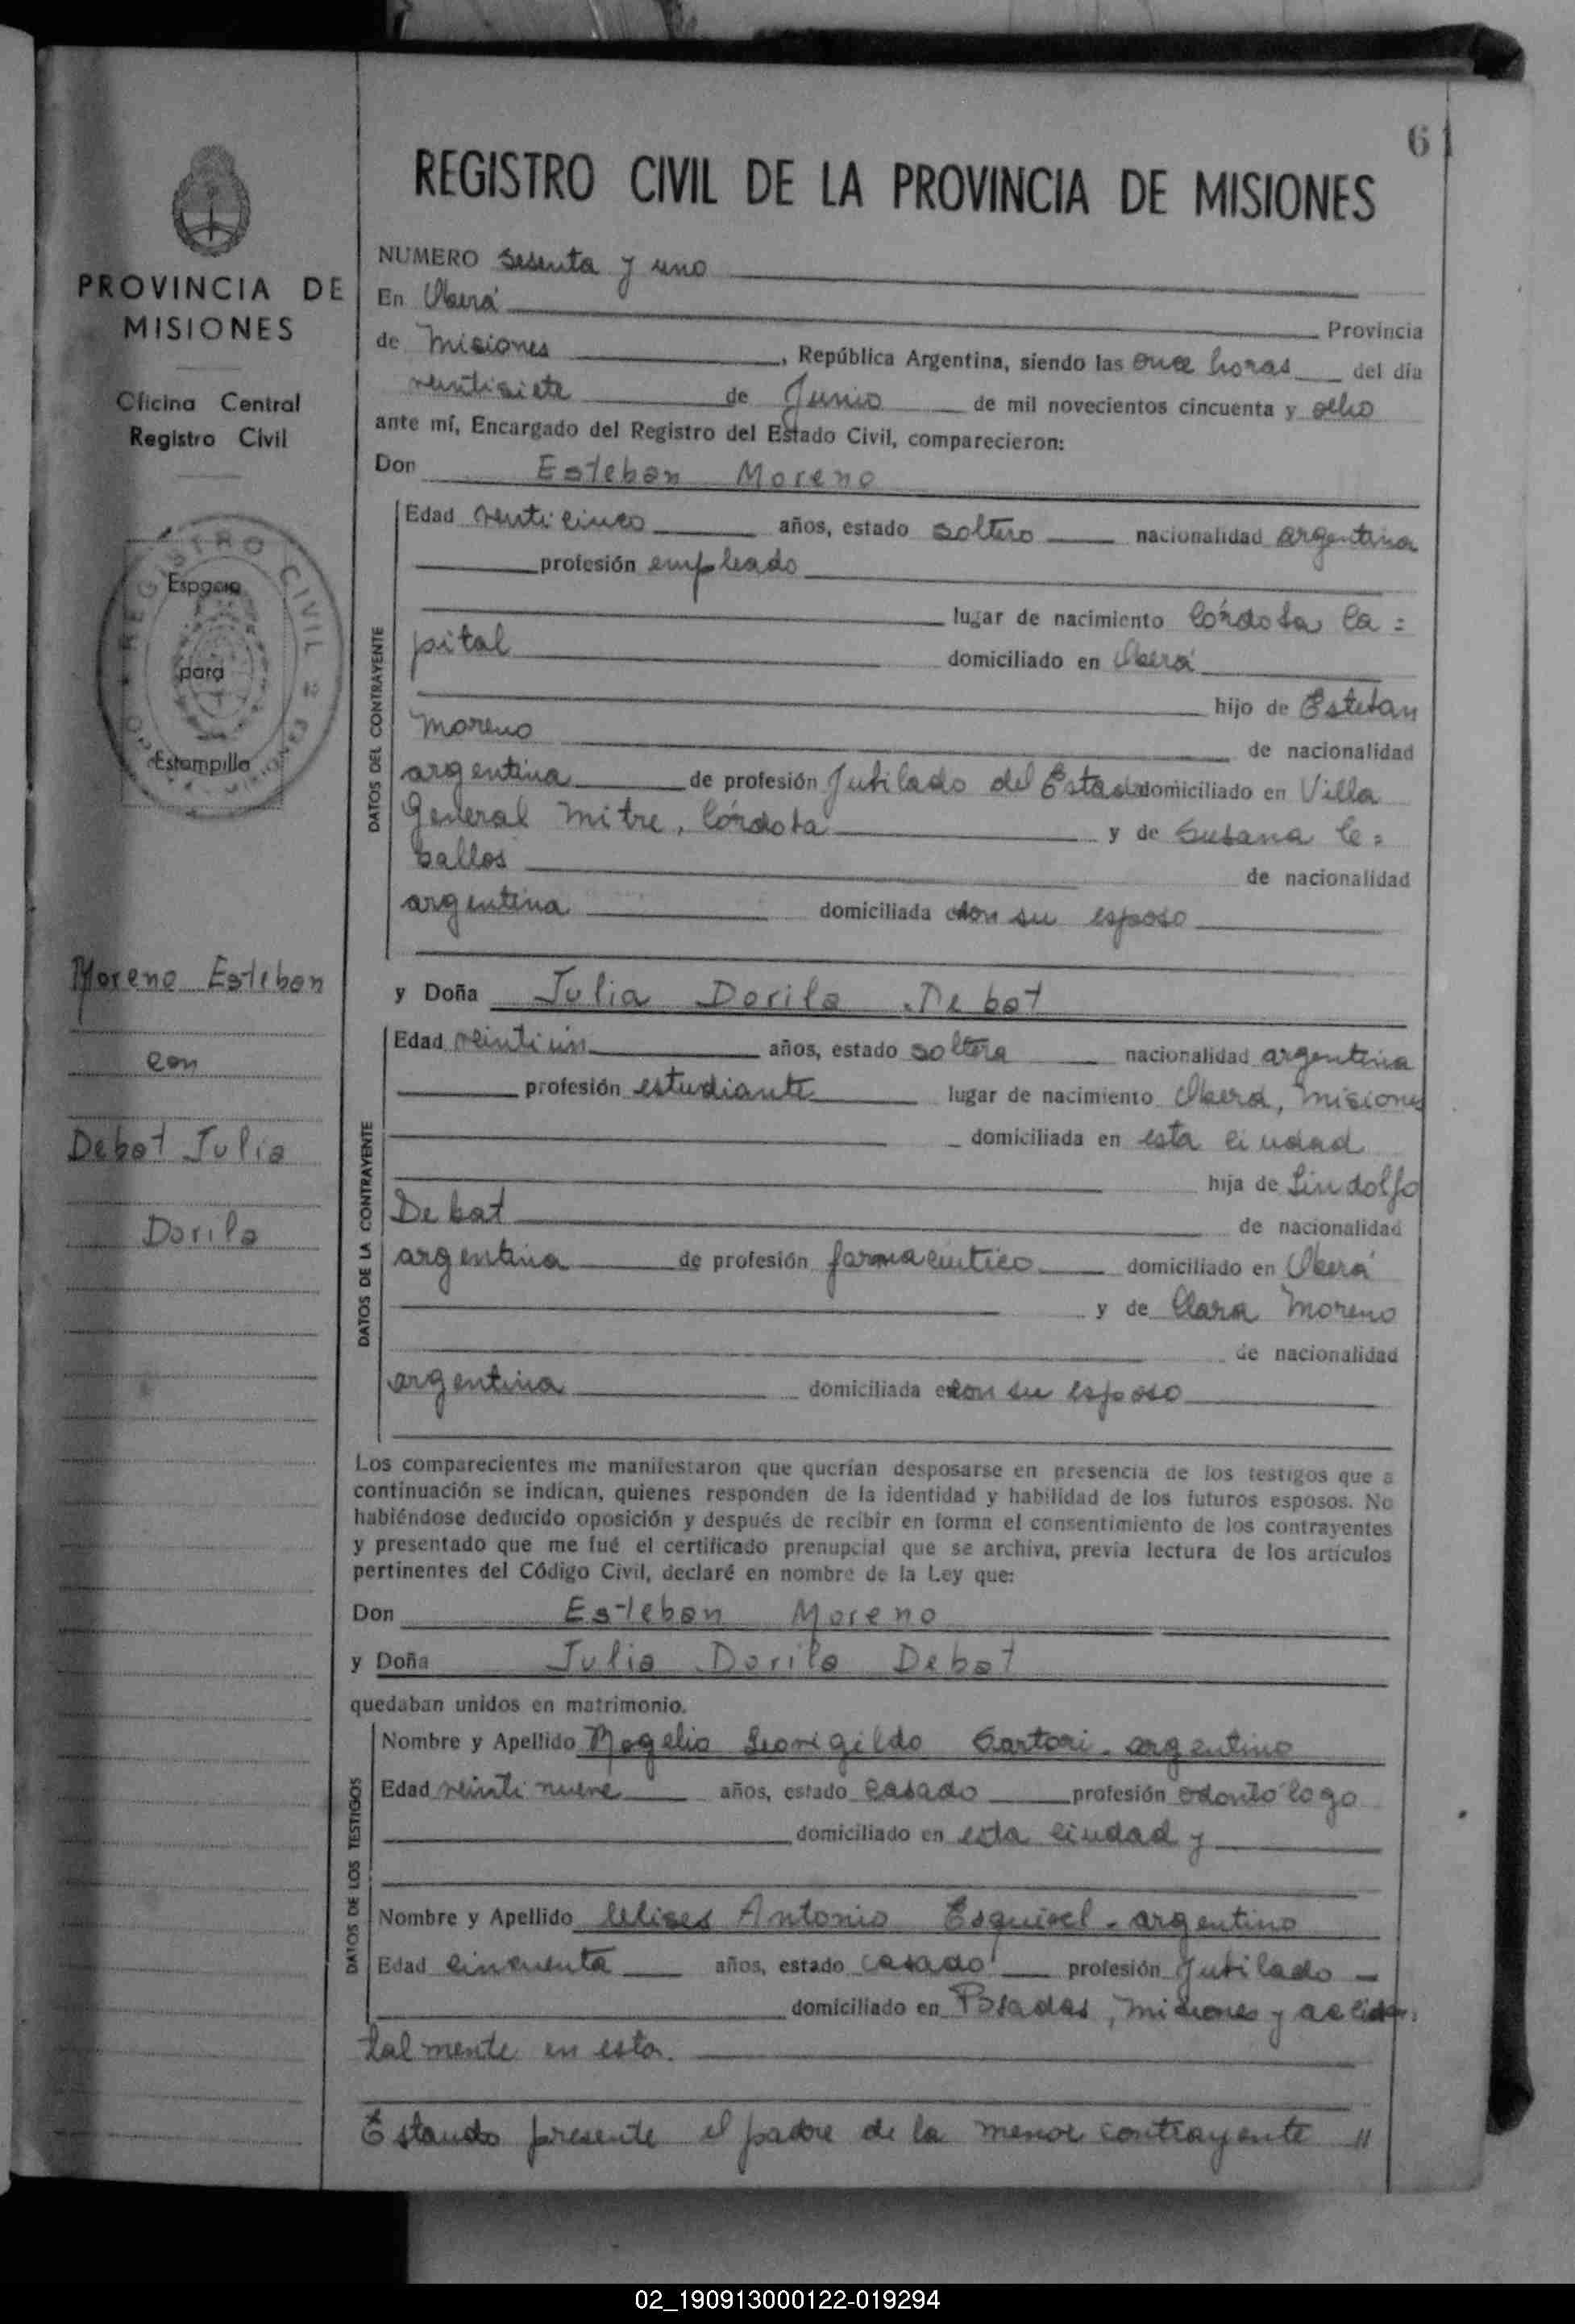 61
REGISTRO CIVIL DE LA PROVINCIA DE MISIONES
PROVINCIA DE
MISIONES
Oficina Central
Registro Civil
REGISTRO CIVIL
Espacio
para
Estampilla
Moreno Esteban
con
Debat Julia
Dorila
NUMERO sesenta y uno
En Oberá Provincia
de Misiones, República Argentina, siendo las once horas del día
veintisiete de Junio de mil novecientos cincuenta y ocho
ante mí, Encargado del Registro del Estado Civil, comparecieron:
Don Esteban Moreno
DATOS DEL CONTRAYENTE
Edad venticinco años, estado soltero nacionalidad argentina
profesión empleado
lugar de nacimiento Córdoba Ca=
pital domiciliado en Oberá
hijo de Esteban
Moreno de nacionalidad
argentina de profesión Jubilado del Estado domiciliado en Villa
General Mitre, Córdoba y de Susana Ce=
ballos de nacionalidad
argentina domiciliada con su esposo
y Doña Julia Dorila Debat
DATOS DE LA CONTRAYENTE
Edad veintiún años, estado soltera nacionalidad argentina
profesión estudiante lugar de nacimiento Oberá, Misiones
domiciliada en esta ciudad
hija de Lindolfo
Debat de nacionalidad
argentina de profesión farmacéutico domiciliado en Oberá
y de Clara Moreno
de nacionalidad
argentina domiciliada con su esposo
Los comparecientes me manifestaron que querían desposarse en presencia de los testigos que a
continuación se indican, quienes responden de la identidad y habilidad de los futuros esposos. No
habiéndose deducido oposición y después de recibir en forma el consentimiento de los contrayentes
y presentado que me fué el certificado prenupcial que se archiva, previa lectura de los artículos
pertinentes del Código Civil, declaré en nombre de la Ley que:
Don Esteban Moreno
y Doña Julia Dorila Debat
quedaban unidos en matrimonio.
DATOS DE LOS TESTIGOS
Nombre y Apellido Rogelio Leovigildo Sartori - argentino
Edad veintinueve años, estado casado profesión odontólogo
domiciliado en esta ciudad y
Nombre y Apellido Ulises Antonio Esquivel - argentino
Edad cincuenta años, estado casado profesión Jubilado -
domiciliado en Posadas, Misiones y acciden-
talmente en esta.
Estando presente el padre de la menor contrayente //
02_190913000122-019294